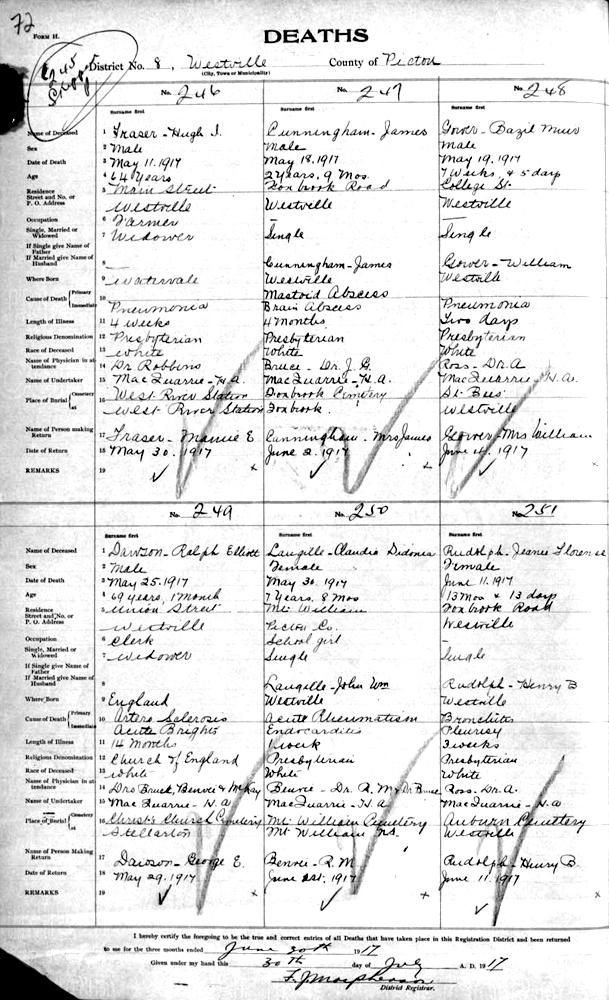 72
FORM H.
DEATHS
District No. 8, Westville County of Pictou
(City, Town or Municipality)
No. 246 No. 247 No. 248
Surname first Surname first Surname first
Name of Deceased 1 Fraser - Hugh J. Cunningham - James Gower - Bazil Muir
Sex 2 Male Male Male
Date of Death 3 May 11. 1917 May 18. 1917 May 19. 1917
Age 4 64 Years 2 Years, 9 Mos. 7 Weeks, & 5 days
Residence 5 Main Street Foxbrook Road College St.
Street and No. or P. O. Address Westville Westville Westville
Occupation 6 Farmer — —
Single, Married or Widowed 7 Widower Single Single
If Single give Name of Father
If Married give Name of Husband 8 — Cunningham - James Gower - William
Where Born 9 Watervale Westville Westville
Cause of Death Primary 10 Mastoid Abscess
Immediate Pneumonia Brain Abscess Pneumonia
Length of Illness 11 4 weeks 4 months Two days
Religious Denomination 12 Presbyterian Presbyterian Presbyterian
Race of Deceased 13 White White White
Name of Physician in attendance 14 Dr Robbins Bruce - Dr. J. G. Ross - Dr. A
Name of Undertaker 15 MacQuarrie - H. A. MacQuarrie - H. A. MacQuarrie - H. A.
Place of Burial Cemetery 16 West River Station Foxbrook Cemetery St. Bees
at West River Station Foxbrook. Westville
Name of Person making Return 17 Fraser - Mamie E Cunningham - Mrs James Gower - Mrs William
Date of Return 18 May 30. 1917 June 2. 1917 June 4. 1917
REMARKS 19
No. 249 No. 250 No. 251
Surname first Surname first Surname first
Name of Deceased 1 Dawson - Ralph Elliott Langille - Claudia Rudolph - Jeanie Florence
Sex 2 Male Female Female
Date of Death 3 May 25. 1917 May 30. 1917 June 11. 1917
Age 4 69 years, 1 month 7 Years, 8 Mos 13 Mos & 13 days
Residence 5 Union Street Mt. William Foxbrook Road
Street and No. or P. O. Address Westville Pictou Co. Westville
Occupation 6 Clerk School girl
Single, Married or Widowed 7 Widower Single Single
If Single give Name of Father
If Married give Name of Husband 8 Langille - John Wm Rudolph - Henry B
Where Born 9 England Westville Westville
Cause of Death Primary 10 Artero Sclerosis Acute Rheumatism Bronchitis
Immediate Acute Brights Endocarditis Pleurisy
Length of Illness 11 14 months 1 week 3 weeks
Religious Denomination 12 Church of England Presbyterian Presbyterian
Race of Deceased 13 White White White
Name of Physician in attendance 14 Drs Bruce, Benvie & McKay Benvie - Dr. R. M & Dr. Bruce Ross - Dr. A.
Name of Undertaker 15 MacQuarrie - H. A MacQuarrie - H. A MacQuarrie - H. A
Place of Burial Cemetery 16 Christ's Church Cemetery Mt. William Cemetery Auburn Cemetery
at Stellarton Mt. William N.S. Westville
Name of Person Making Return 17 Dawson - George E. Benvie - R. M Rudolph - Henry B.
Date of Return 18 May 29. 1917 June 1917 June 11. 1917
REMARKS 19
I hereby certify the foregoing to be the true and correct entries of all Deaths that have taken place in this Registration District and been returned
to me for the three months ended June 30th 1917
Given under my hand this 30th day of July A. D. 1917
District Registrar.